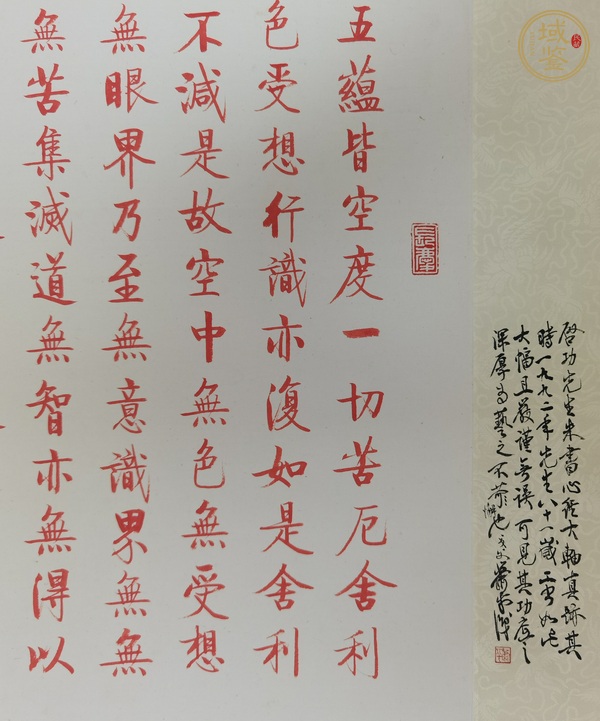 域鉴
啓功先生朱書心經大軸真跡其
時一九九二年先生八十一歲書如此
大幅且嚴謹無誤可見其功底之
深厚藝之不也
五蘊皆空度一切苦厄舍利
色受想行識亦復如是舍利
不減是故空中無色無受想
無眼界乃至無意識界無無
無苦集滅道無智亦無得以